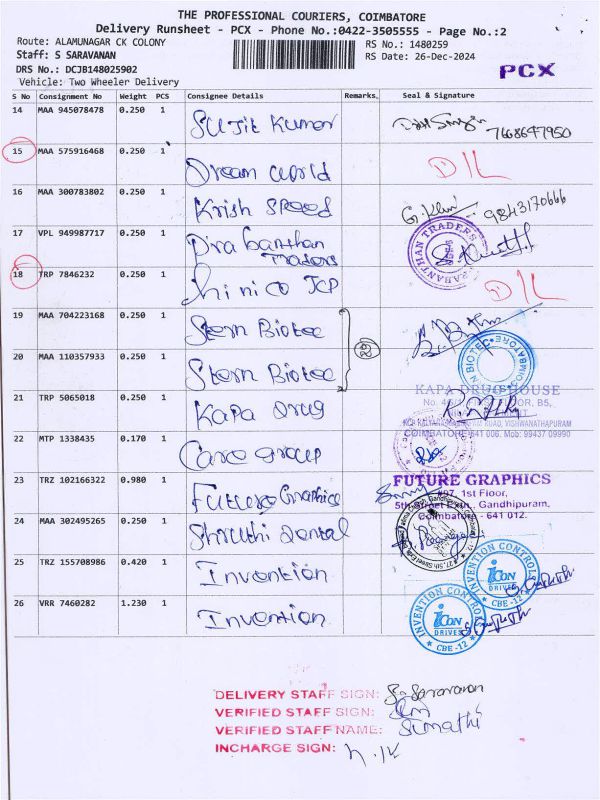 THE PROFESSIONAL COURIERS, COIMBATORE
Delivery Runsheet - PCX - Phone No.:0422-3505555 - Page No.:2
Route: ALAMUNAGAR CK COLONY
RS No.: 1480259
Staff: S SARAVANAN
RS Date: 26-Dec-2024
DRS No.: DCJB148025902
PCX
Vehicle: Two Wheeler Delivery
S No Consignment No Weight PCS Consignee Details Remarks. Seal & Signature
14 MAA 945078478 0.250 1 Sujit Kumar 7668647950
15 MAA 575916468 0.250 1 Dream World DIL
16 MAA 300783802 0.250 1 Krish Speed 9843170666
17 VPL 949987717 0.250 1 Prabanthan Traders
18 TRP 7846232 0.250 1 DIL
19 MAA 704223168 0.250 1 Stern Biotec
20 MAA 110357933 0.250 1 Stern Biotec
21 TRP 5065018 0.250 1 Kapa Drug
KAPA DRUG HOUSE
COIMBATORE-641 006. Mob: 99437 09990
22 MTP 1338435 0.170 1 Care group
23 TRZ 102166322 0.980 1 Future Graphics
FUTURE GRAPHICS
#97, 1st Floor,
5th Street Extn., Gandhipuram,
Coimbatore - 641 012.
24 MAA 302495265 0.250 1 Shruthi Dental
25 TRZ 155708986 0.420 1 Invention
INVENTION CONTROLS
iCON
DRIVES
CBE-12
26 VRR 7460282 1.230 1 Invention
INVENTION CONTROLS
iCON
DRIVES
CBE-12
DELIVERY STAFF SIGN: S. Saravanan
VERIFIED STAFF SIGN:
VERIFIED STAFF NAME: Sumathi
INCHARGE SIGN: